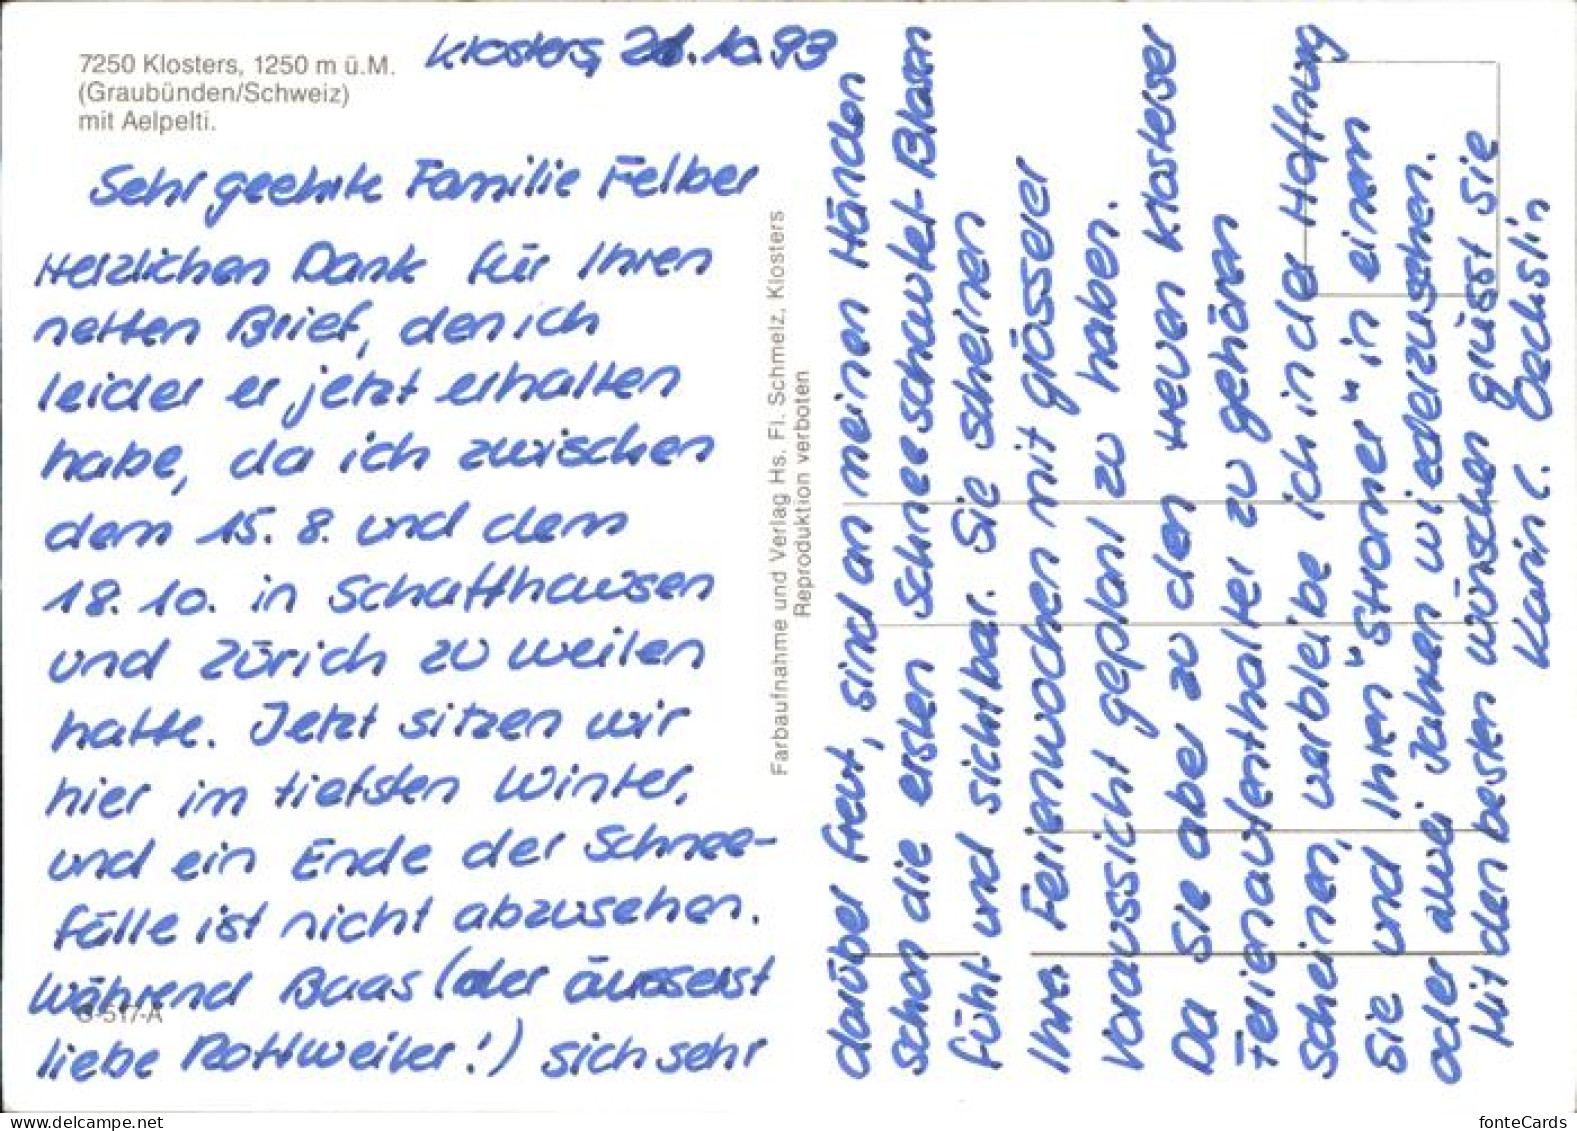 7250 Klosters, 1250 m ü.M.
(Graubünden/Schweiz)
mit Aelpelti.
Klosters, 21.10.93
Sehr geehrte Familie Felber
Herzlichen Dank für Ihren
netten Brief, den ich
leider er jetzt erhalten
habe, da ich zwischen
dem 15.8. und dem
18.10. in Schaffhausen
und Zürich zu weilen
hatte. Jetzt sitzen wir
hier im tiefsten Winter,
und ein Ende der Schnee-
fälle ist nicht abzusehen.
Während Baas (der äusserst
liebe Rottweiler!) sich sehr
G-517-A
Farbaufnahme und Verlag Hs. Fl. Schmelz, Klosters
Reproduktion verboten
darüber freut, sind an meinen Händen
schon die ersten Schneeschaufel-Blasen
fühl- und sichtbar. Sie scheinen
Ihre Ferienwochen mit grösserer
Voraussicht geplant zu haben.
Da Sie aber zu den treuen Klosterser
Ferienaufenthalter zu gehören
scheinen, verbleibe ich in der Hoffnung
Sie und Ihren "Stromer" in einem
oder zwei Jahren wiederzusehen.
Mit den besten Wünschen grüsst Sie
Karin C. Oechslin
www.delcampe.net
fonteCards